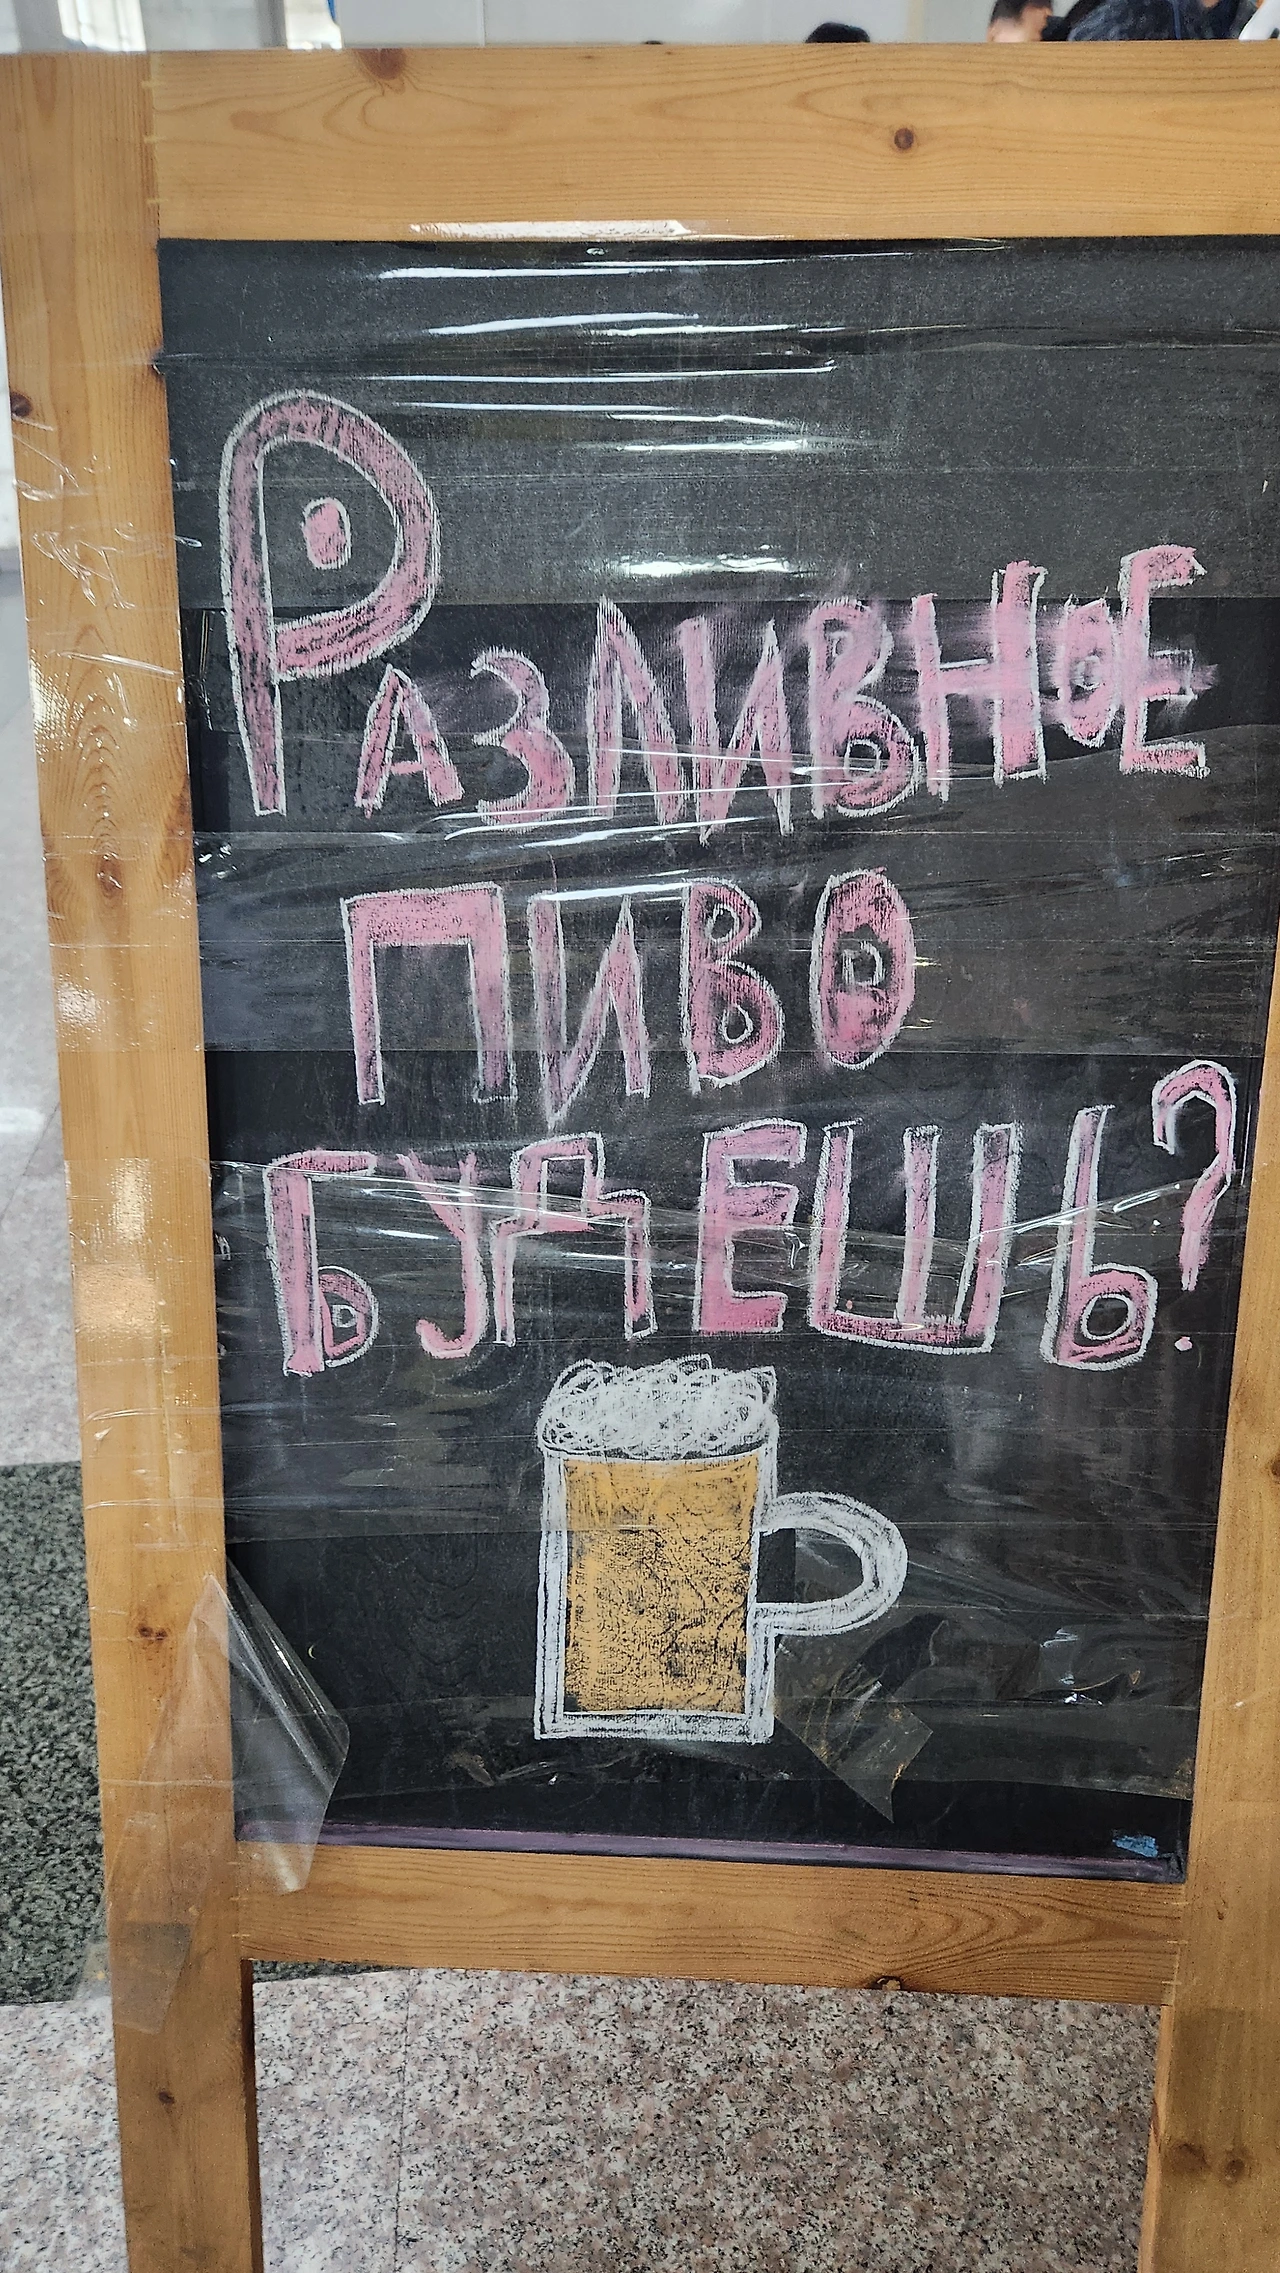 РАЗЛИВНОЕ
ПИВО
БУДЕШЬ?